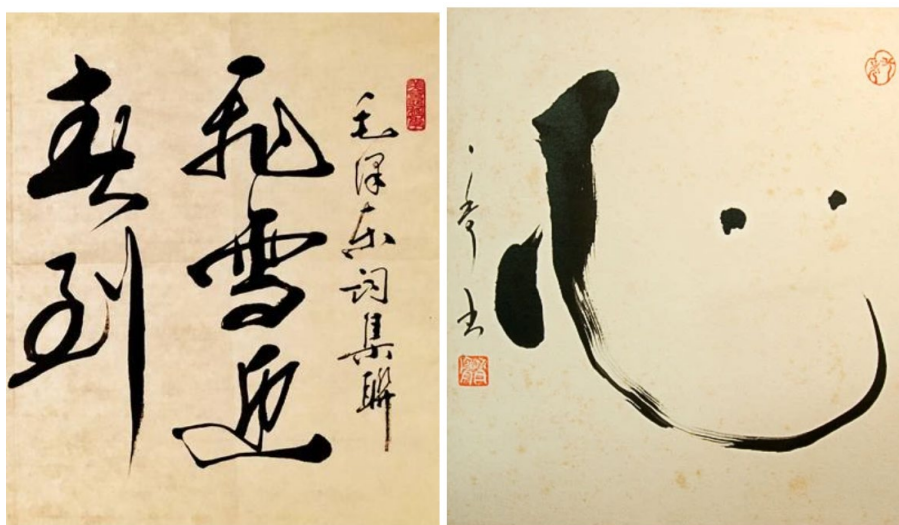 毛泽东词集聯
飛雪迎
春到
心